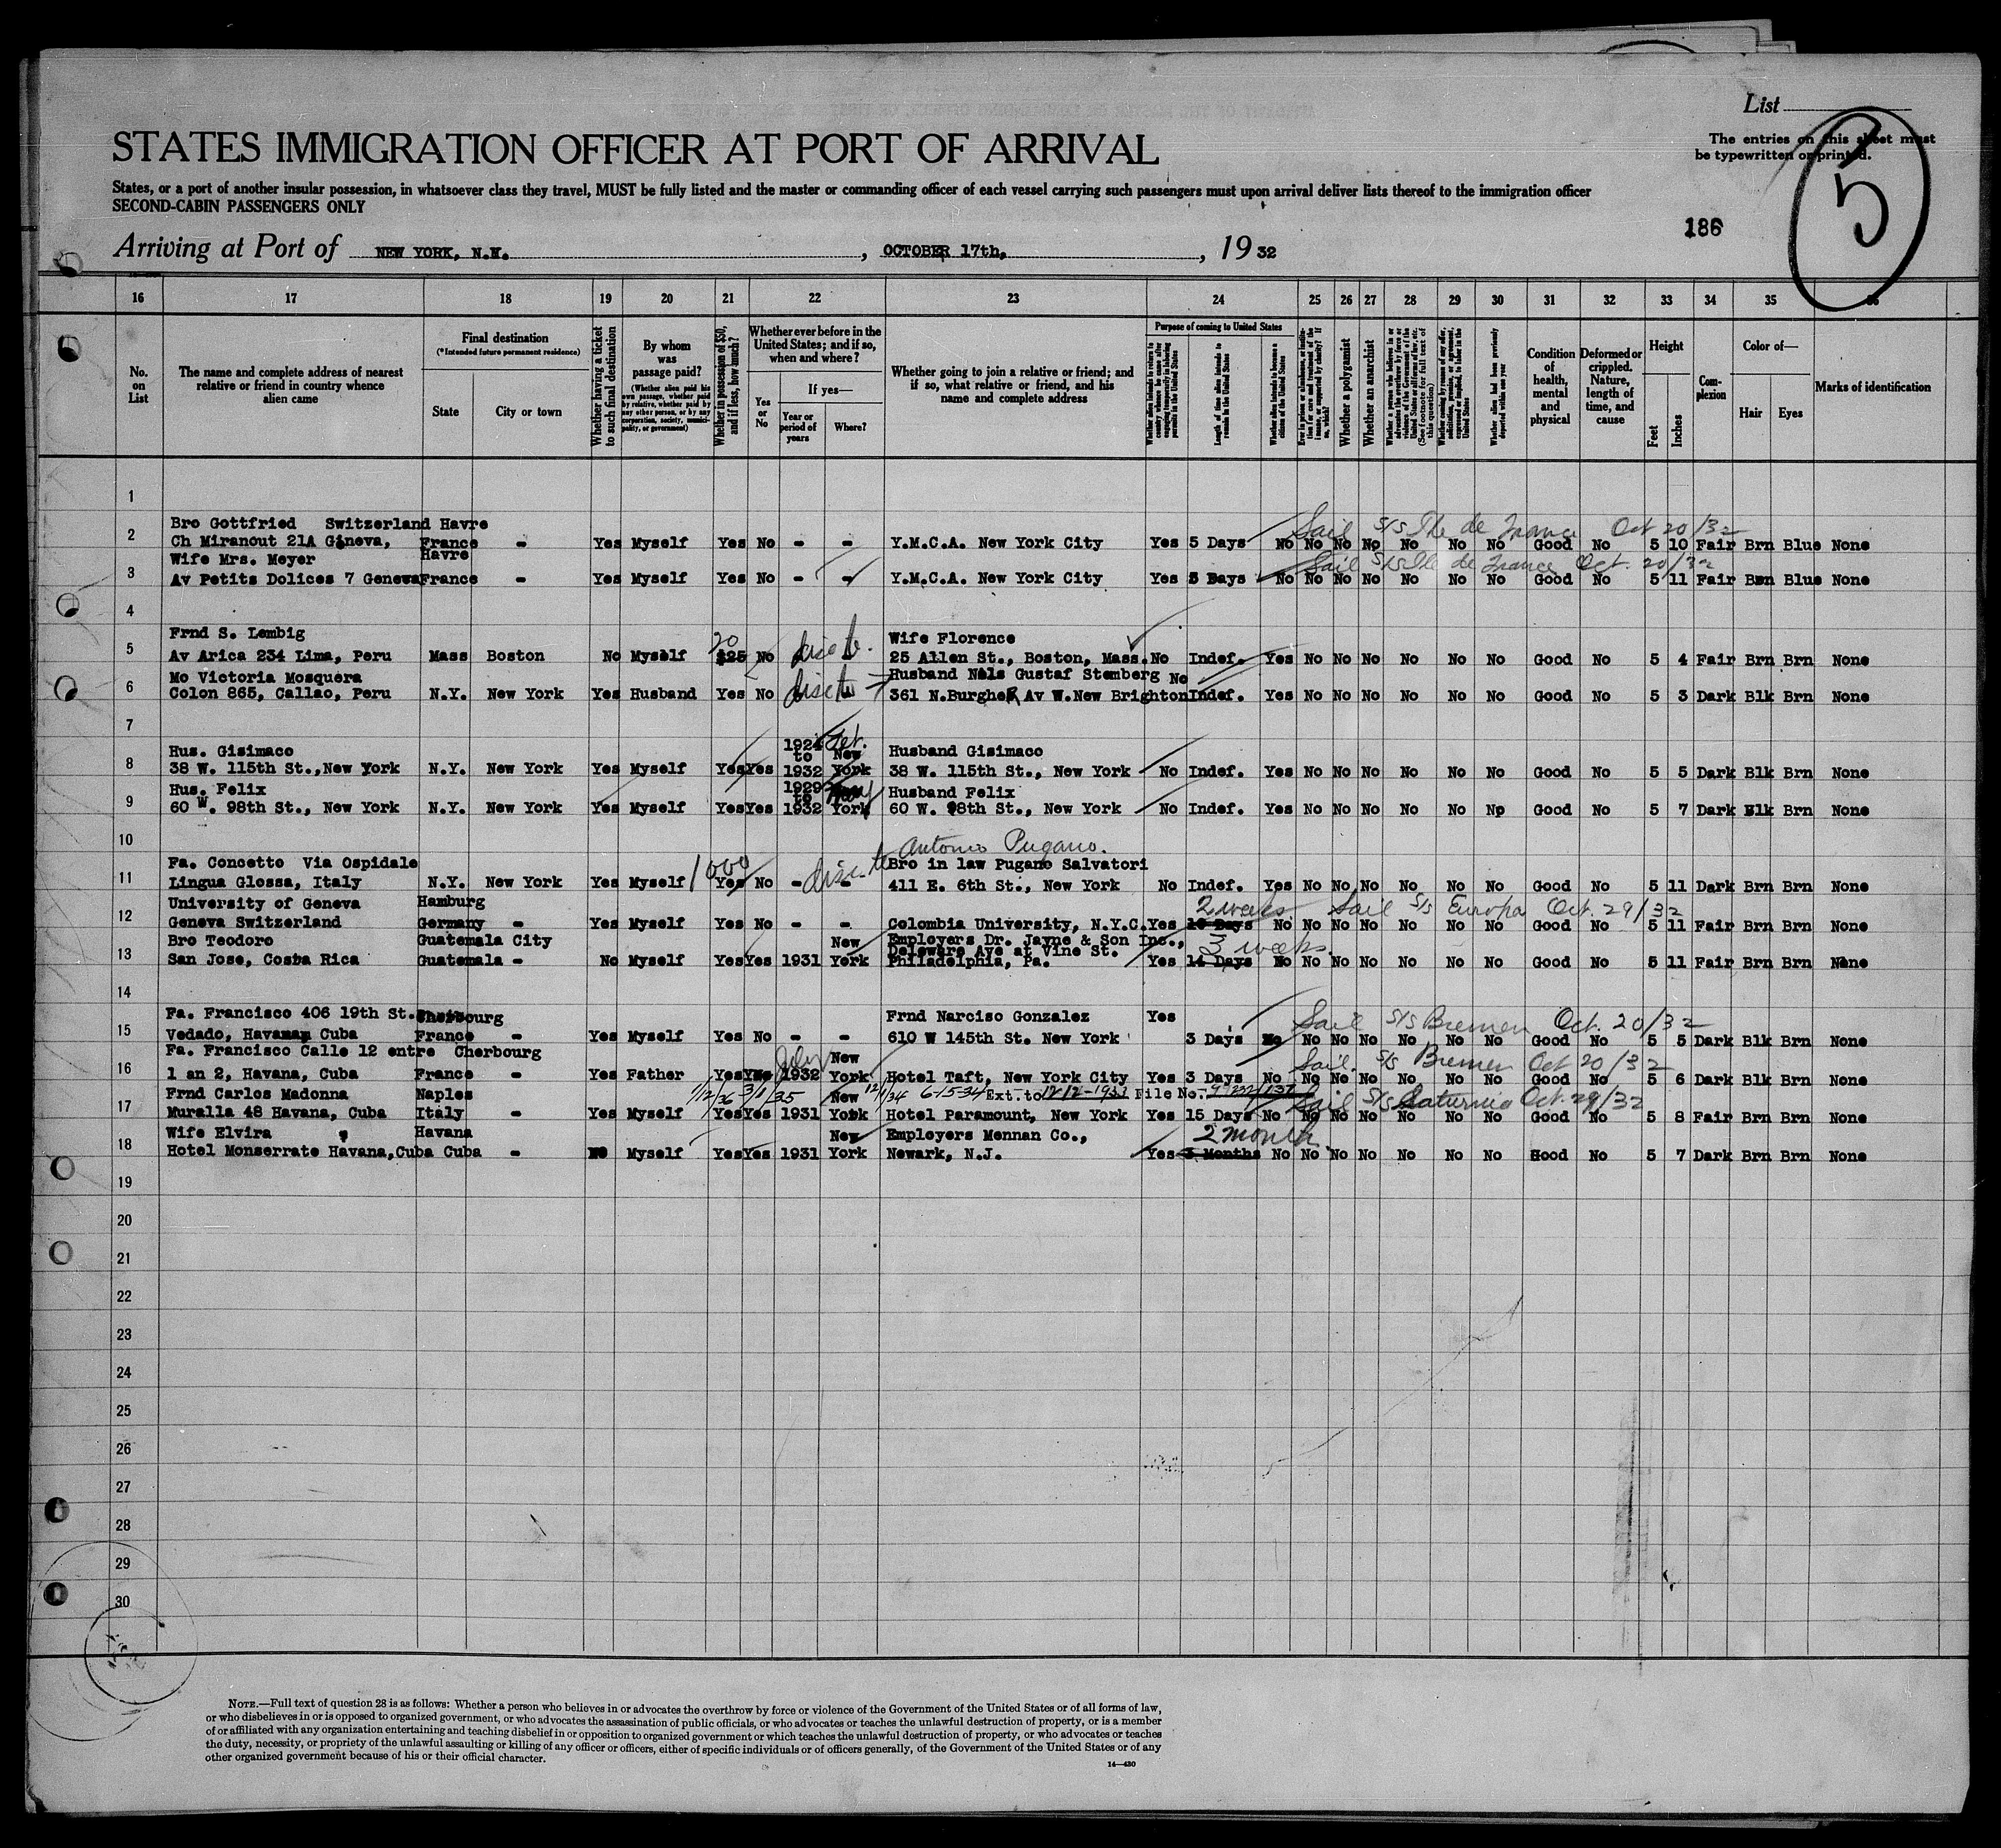 List
The entries on this sheet must
be typewritten or printed.
5
STATES IMMIGRATION OFFICER AT PORT OF ARRIVAL
States, or a port of another insular possession, in whatsoever class they travel, MUST be fully listed and the master or commanding officer of each vessel carrying such passengers must upon arrival deliver lists thereof to the immigration officer
SECOND-CABIN PASSENGERS ONLY
186
Arriving at Port of NEW YORK, N.Y. , OCTOBER 17th, , 19 32
16 17 18 19 20 21 22 23 24 25 26 27 28 29 30 31 32 33 34 35 36
No. on List
The name and complete address of nearest relative or friend in country whence alien came
Final destination
(*Intended future permanent residence)
State
City or town
Whether having a ticket to such final destination
By whom was passage paid?
(Whether alien paid his own passage, whether paid by relative, whether paid by any other person, or by any corporation, society, municipality, or government)
Whether in possession of $50, and if less, how much?
Whether ever before in the United States; and if so, when and where?
Yes or No
If yes—
Year or period of years
Where?
Whether going to join a relative or friend; and if so, what relative or friend, and his name and complete address
Purpose of coming to United States
Whether alien intends to return to country whence he came after engaging temporarily in laboring pursuits in the United States
Length of time alien intends to remain in the United States
Whether alien intends to become a citizen of the United States
Whether a polygamist
Whether an anarchist
Whether alien had been previously deported within one year
Condition of health, mental and physical
Deformed or crippled. Nature, length of time, and cause
Height
Feet
Inches
Complexion
Color of—
Hair
Eyes
Marks of identification
1
Bro Gottfried Switzerland Havre Sail S/S Ile de France Oct 20/32
2 Ch Miranout 21A Geneva, France - Yes Myself Yes No - - Y.M.C.A. New York City Yes 5 Days No No No No No No No Good No 5 10 Fair Brn Blue None
Wife Mrs. Meyer Havre Sail S/S Ile de France Oct. 20/32
3 Av Petits Dolices 7 Geneva France - Yes Myself Yes No - - Y.M.C.A. New York City Yes 5 Days No No No No No No No Good No 5 11 Fair Brn Blue None
4
Frnd S. Lembig 20 Wife Florence
5 Av Arica 234 Lima, Peru Mass Boston No Myself $25 No - 25 Allen St., Boston, Mass. No Indef. Yes No No No No No No Good No 5 4 Fair Brn Brn None
Mo Victoria Mosquera Husband Nils Gustaf Stemberg No
6 Colon 865, Callao, Peru N.Y. New York Yes Husband Yes No 361 N.Burgher Av W.New Brighton Indef. Yes No No No No No No Good No 5 3 Dark Blk Brn None
7
Hus. Gisimaco 1924 to New Husband Gisimaco
8 38 W. 115th St.,New York N.Y. New York Yes Myself Yes Yes 1932 York 38 W. 115th St., New York No Indef. Yes No No No No No No Good No 5 5 Dark Blk Brn None
Hus. Felix 1929 to Husband Felix
9 60 W. 98th St., New York N.Y. New York Yes Myself Yes Yes 1932 York 60 W. 98th St., New York No Indef. Yes No No No No No No Good No 5 7 Dark Blk Brn None
10 Antonio Pugano.
Fa. Concetto Via Ospidale 1000 Bro in law Pugano Salvatori
11 Lingua Glossa, Italy N.Y. New York Yes Myself Yes No - - 411 E. 6th St., New York No Indef. Yes No No No No No No Good No 5 11 Dark Brn Brn None
University of Geneva Hamburg 2 weeks Sail S/S Europa Oct. 29/32
12 Geneva Switzerland Germany - Yes Myself Yes No - - Colombia University, N.Y.C. Yes 10 Days No No No No No No No Good No 5 11 Fair Brn Brn None
Bro Teodoro Guatemala City New Employers Dr. Jayne & Son Inc., Delewere Ave at Vine St. 3 weeks
13 San Jose, Costa Rica Guatemala - No Myself Yes Yes 1931 York Philadelphia, Pa. Yes 14 Days No No No No No No No Good No 5 11 Fair Brn Brn None
14
Fa. Francisco 406 19th St. Cherbourg Frnd Narciso Gonzalez Yes Sail S/S Bremen Oct. 20/32
15 Vedado, Havana, Cuba France - Yes Myself Yes No - - 610 W 145th St. New York 3 Days No No No No No No No Good No 5 5 Dark Blk Brn None
Fa. Francisco Calle 12 entre Cherbourg July New Sail S/S Bremen Oct 20/32
16 1 an 2, Havana, Cuba France - Yes Father Yes Yes 1932 York Hotel Taft, New York City Yes 3 Days No No No No No No No Good No 5 6 Dark Blk Brn None
Frnd Carlos Madonna Naples 1/12/36 3/1/35 New 12/1/34 6-15-34 Ext. to 12-12-1933 File No. Sail S/S Saturnia Oct. 29/32
17 Muralla 48 Havana, Cuba Italy - Yes Myself Yes Yes 1931 York Hotel Paramount, New York Yes 15 Days No No No No No No No Good No 5 8 Fair Brn Brn None
Wife Elvira Havana New Employers Mennan Co., 2 month
18 Hotel Monserrate Havana,Cuba Cuba - NO Myself Yes Yes 1931 York Newark, N.J. Yes 3 Months No No No No No No No Good No 5 7 Dark Brn Brn None
19
20
21
22
23
24
25
26
27
28
29
30
NOTE.—Full text of question 28 is as follows: Whether a person who believes in or advocates the overthrow by force or violence of the Government of the United States or of all forms of law,
or who disbelieves in or is opposed to organized government, or who advocates the assassination of public officials, or who advocates or teaches the unlawful destruction of property, or is a member
of or affiliated with any organization entertaining and teaching disbelief in or opposition to organized government or which teaches the unlawful destruction of property, or who advocates or teaches
the duty, necessity, or propriety of the unlawful assaulting or killing of any officer or officers, either of specific individuals or of officers generally, of the Government of the United States or of any
other organized government because of his or their official character.
14—430